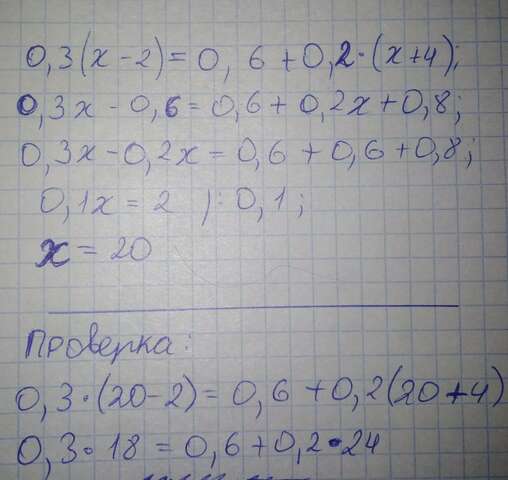 0,3(x-2)=0,6+0,2·(x+4);
0,3x-0,6=0,6+0,2x+0,8;
0,3x-0,2x=0,6+0,6+0,8;
0,1x=2 |:0,1;
x=20
Проверка:
0,3·(20-2)=0,6+0,2(20+4)
0,3·18=0,6+0,2·24